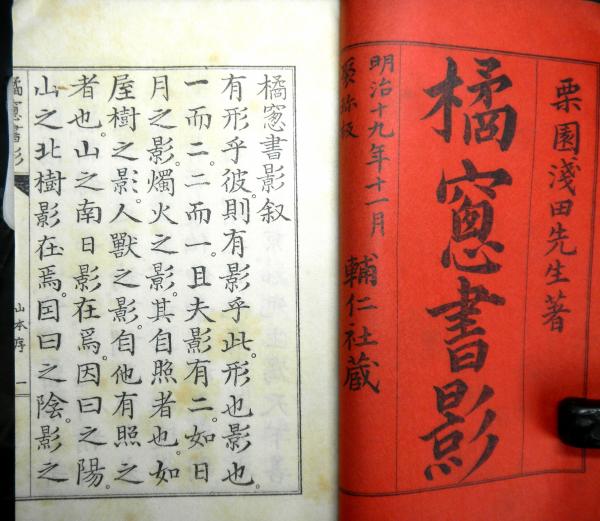 栗園淺田先生著
橘窻書影
明治十九年十一月 輔仁社蔵
橘窻書影叙
有形乎彼。則有影乎此。形也影也。
一而二。二而一。且夫影有二。如日
月之影。燭火之影。其自照者也。如
屋樹之影。人獸之影。自他有照之
者也。山之南日影在焉。因曰之陽。
山之北樹影在焉。因曰之陰。影之
橘窻書影
山本序 一